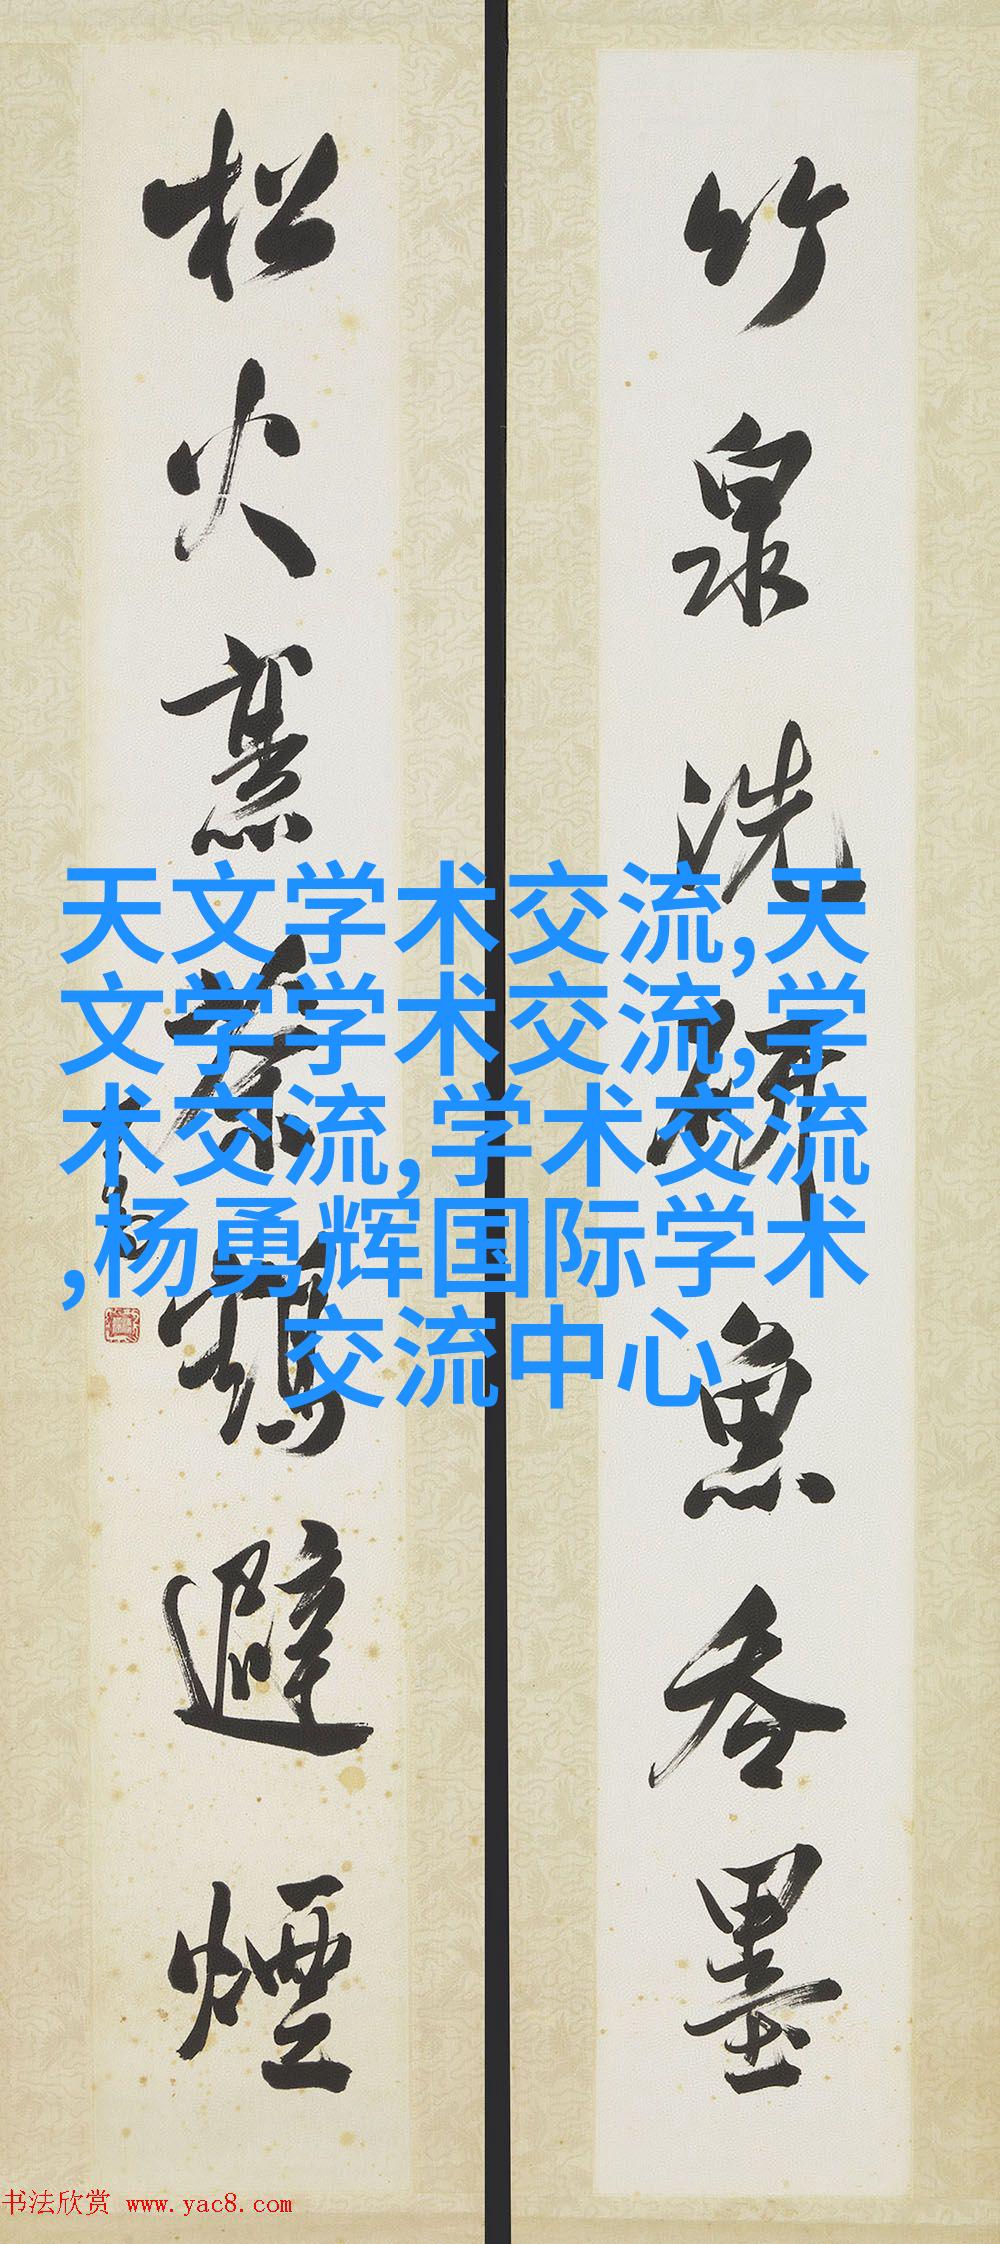 竹泉洗砚魚吞墨
松火烹茶鶴避煙
天文学术交流,天
文学学术交流,学
术交流,学术交流
,杨勇辉国际学术
交流中心
书法欣赏 www.yac8.com